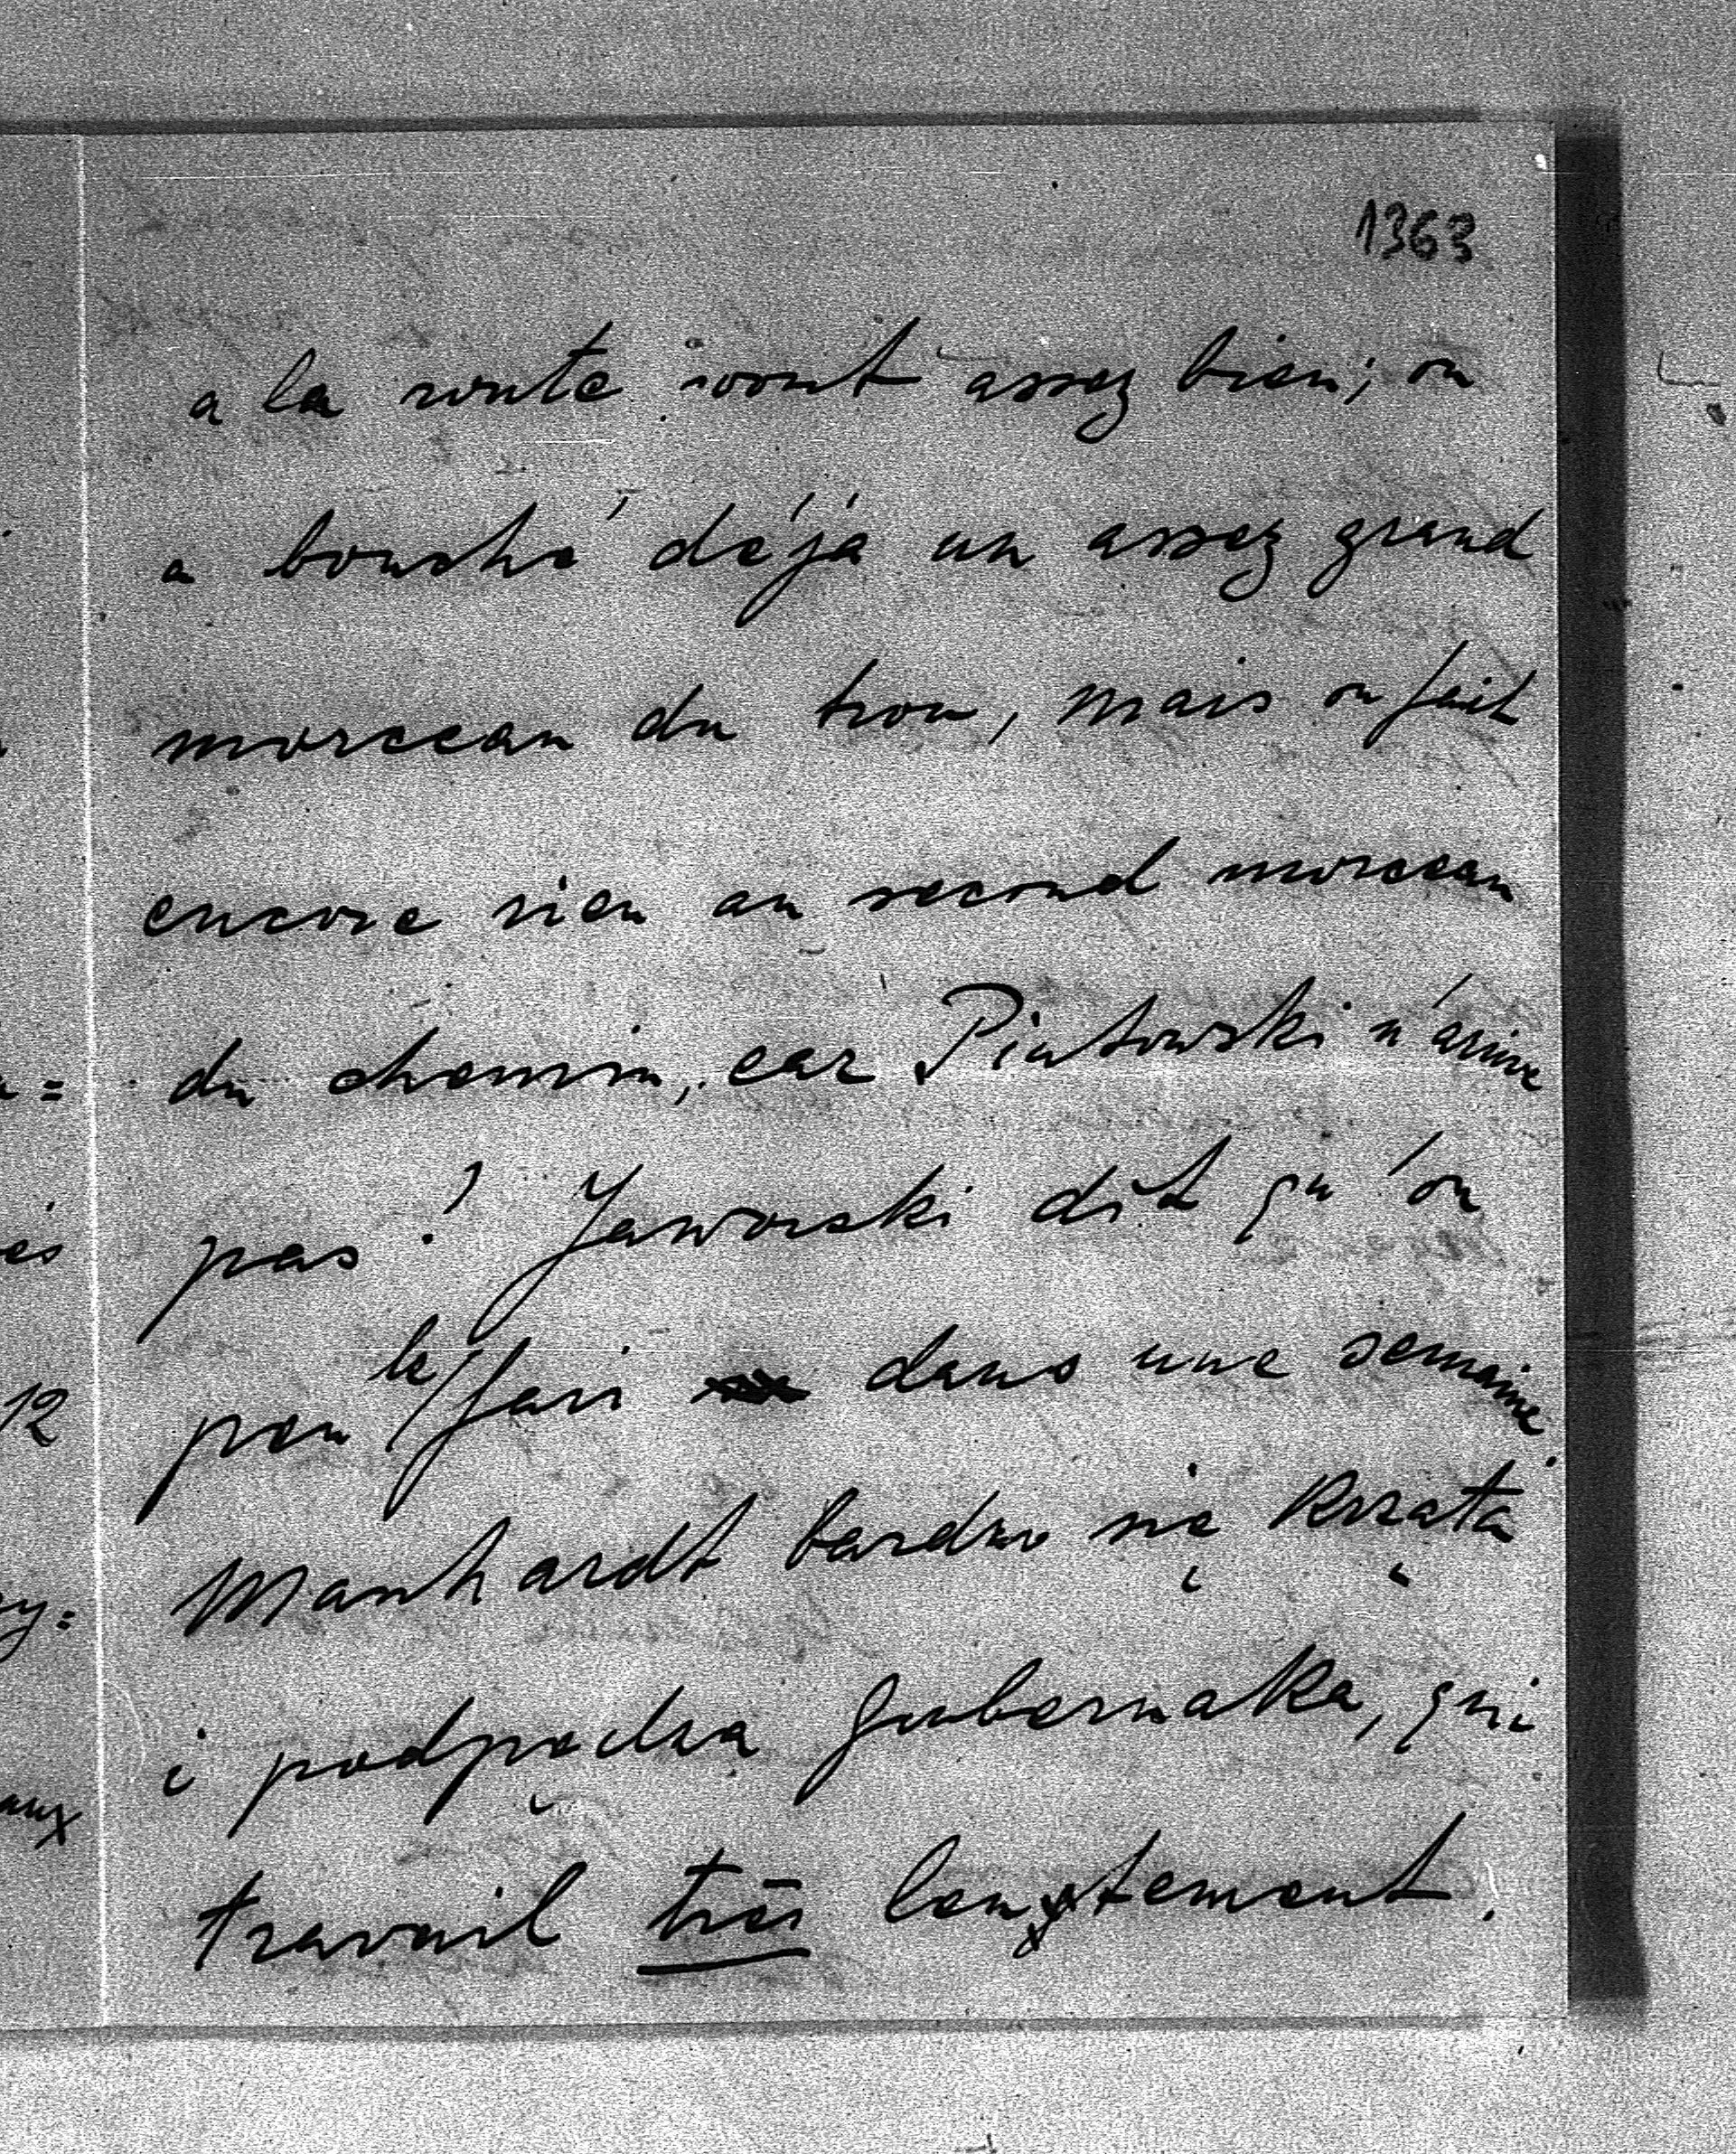 1363
a la route vont assez bien; on
a bouché déjà un assez grand
morceau du trou, mais on fait
encore rien au second morceau
du chemin, car Piutowski n'arive
pas! Jaworski dit qu'on
pou le fari dans une semaine.
Manhardt bardzo się krząta
i podpędza Gubernaka, qui
travail très lentement.